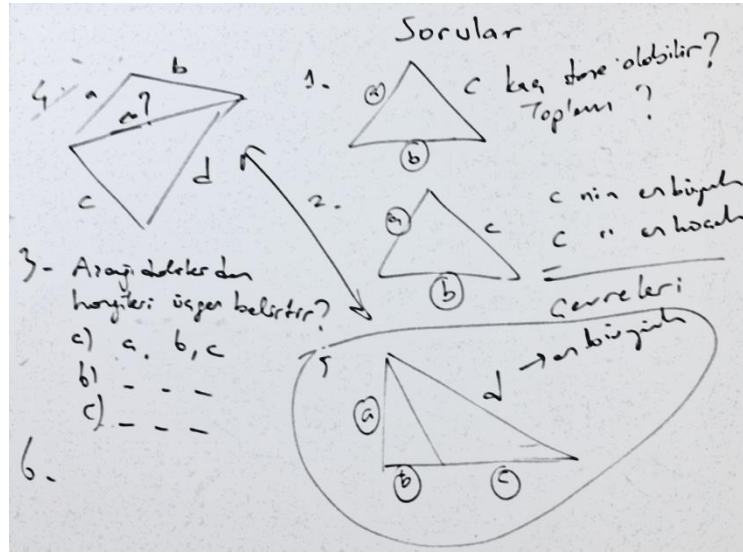 Sorular
1.
a
b
c
c kaç tane olabilir?
Toplam ?
2.
a
b
c
c nin en büyük
c " en küçük
Çevreleri
3- Aşağıdakilerden
hangileri üçgen belirtir?
a) a, b, c
b) _ _ _
c) _ _ _
4.
a
b
n?
c
d
5
a
b
c
d → en büyük
6.